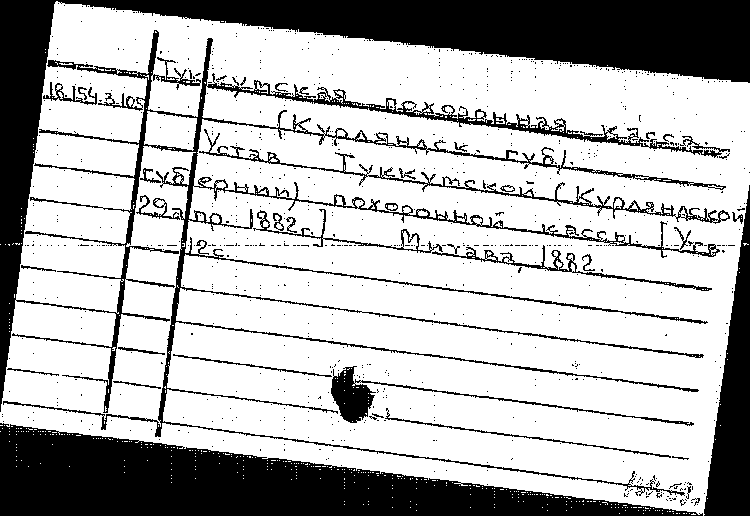 Туккумская похоронная касса.
18.154.3.105
(Курляндск. губ).
Устав Туккумской (Курляндской
губернии) похоронной кассы. [Утв.
29 апр. 1882 г.]. Митава, 1882.
12 с.